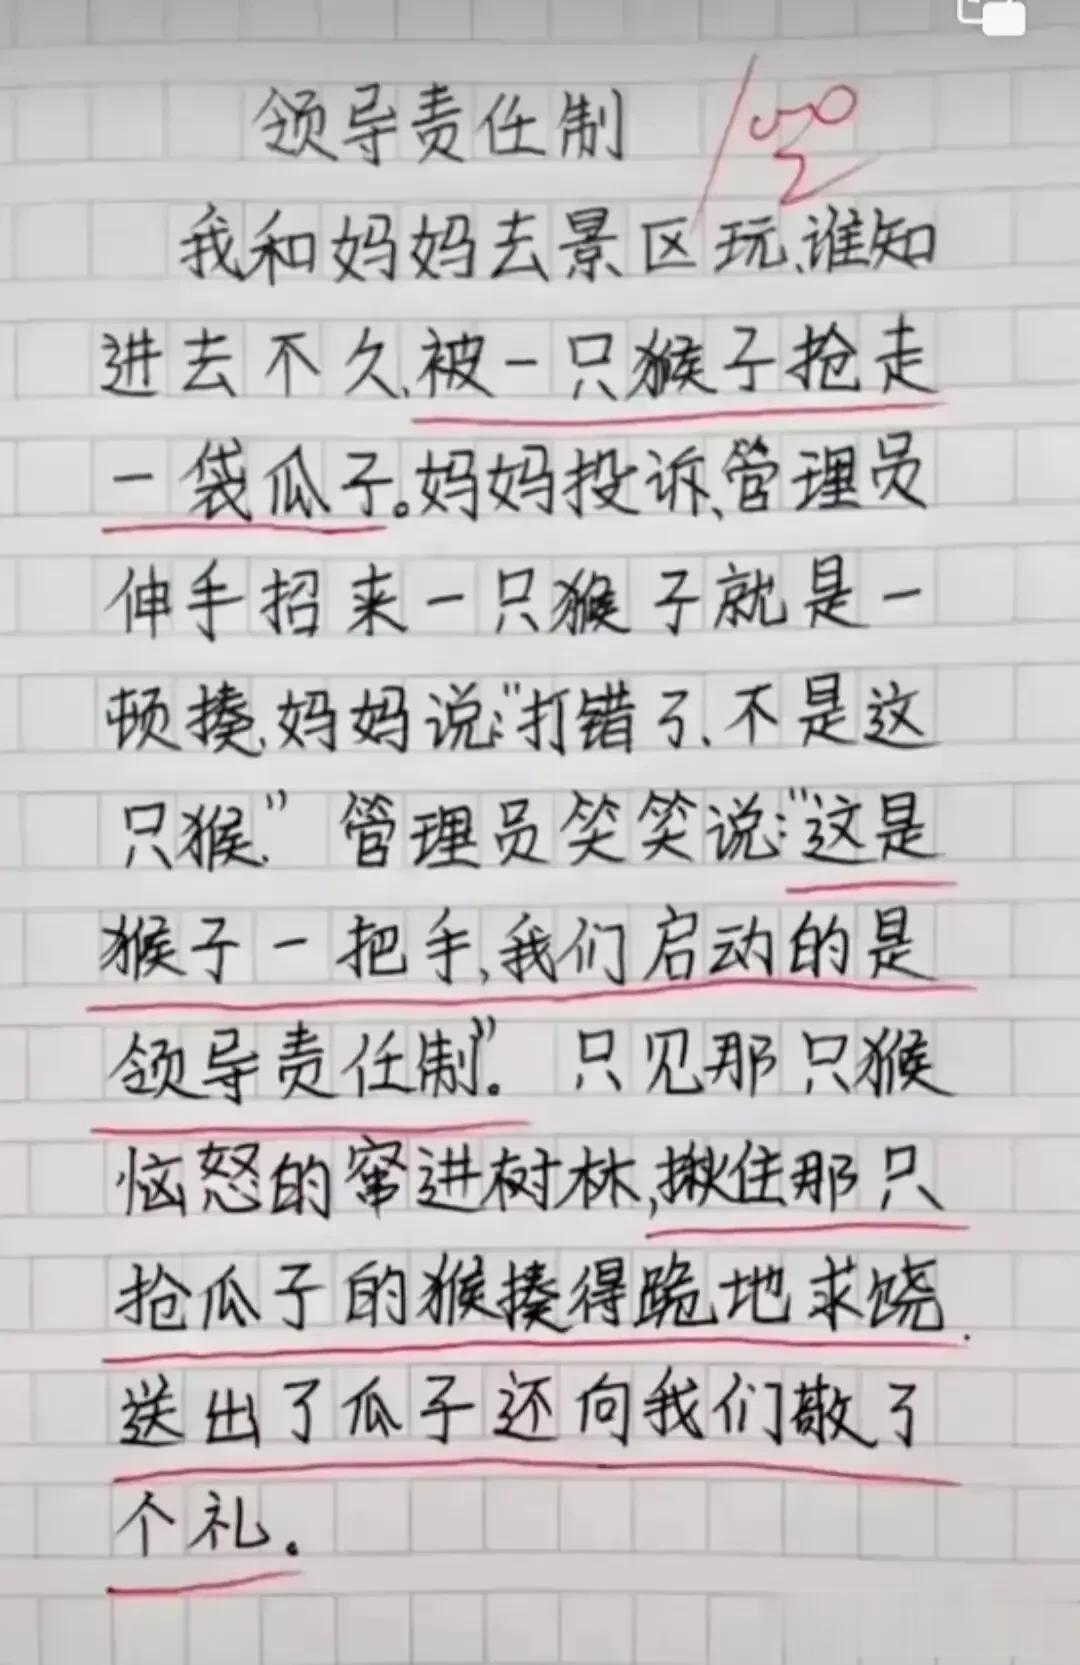 领导责任制 100
我和妈妈去景区玩、谁知
进去不久,被一只猴子抢走
一袋瓜子。妈妈投诉、管理员
伸手招来一只猴子就是一
顿揍,妈妈说:"打错了、不是这
只猴,"管理员笑笑说:"这是
猴子一把手,我们启动的是
领导责任制"。只见那只猴
恼怒的窜进树林,揪住那只
抢瓜子的猴揍得跪地求饶.
送出了瓜子还向我们敬了
个礼。